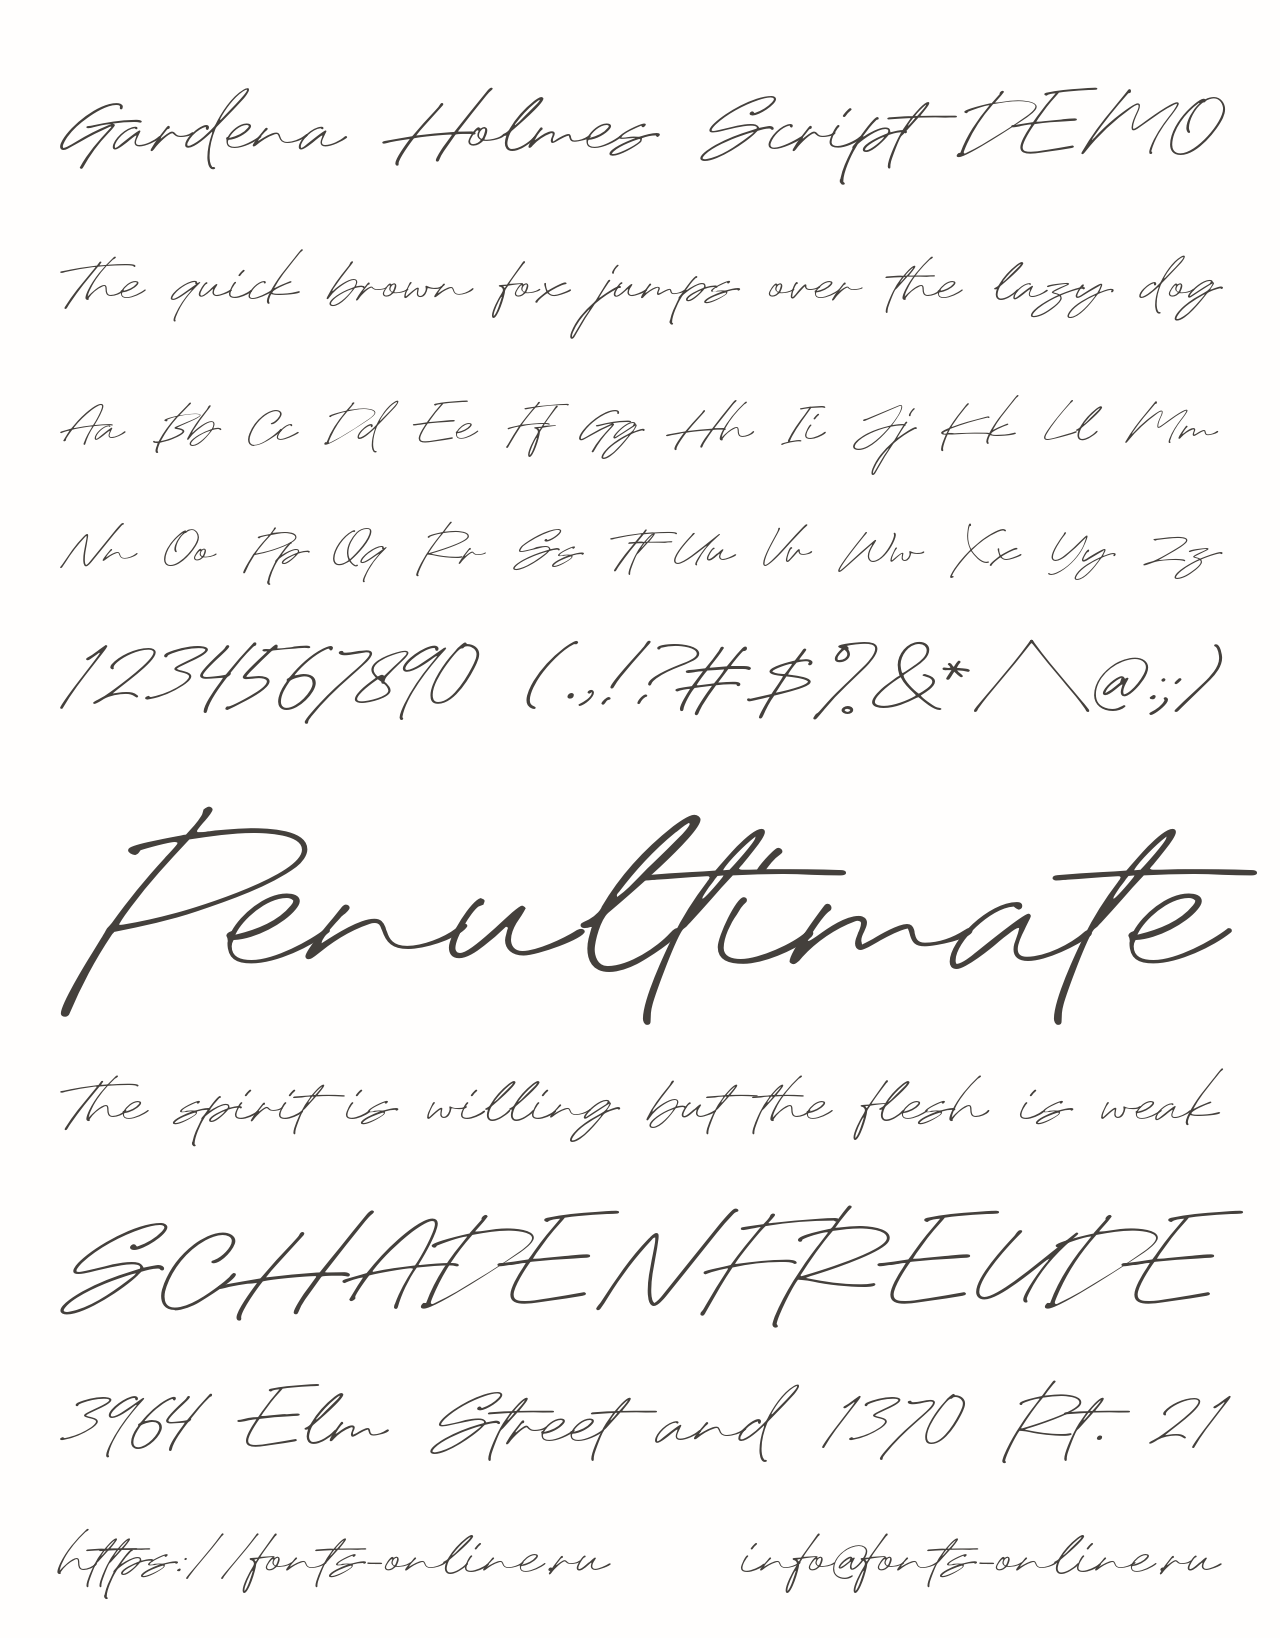 Gardena Holmes Script DEMO
The quick brown fox jumps over the lazy dog
Aa Bb Cc Dd Ee Ff Gg Hh Ii Jj Kk Ll Mm
Nn Oo Pp Qq Rr Ss Tt Uu Vv Ww Xx Yy Zz
1234567890 (.,!?#$%&*/\@:;)
Penultimate
The spirit is willing but the flesh is weak
SCHADENFREUDE
3964 Elm Street and 1370 Rt. 21
https://fonts-online.ru info@fonts-online.ru